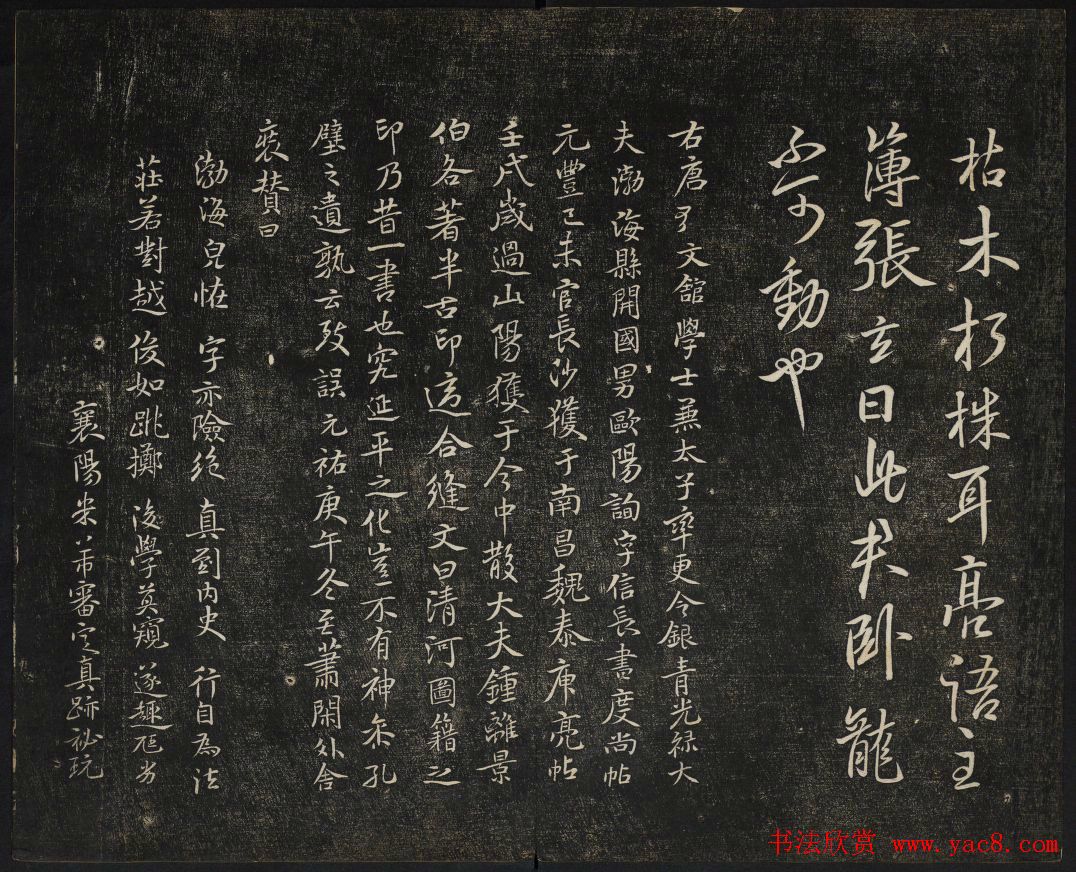 枯木朽株耳亮語主
簿張玄曰此臥龍
不可動也
右唐弘文館學士兼太子率更令銀青光祿大
夫渤海縣開國男歐陽詢字信長書度尚帖
元豐己未官長沙獲于南昌魏泰庾亮帖
壬戌歲過山陽獲于今中散大夫鍾離景
伯各著半古印迨合縫文曰清河圖籍之
印乃昔一書也究延平之化豈不有神孔
壁之遺孰云致誤元祐庚午冬至蕭閑外舍
裒贊曰
渤海光怪 字亦險絕 真到內史 行自為法
莊若對越 俊如跳擲 後學莫窺 遂趣尪劣
襄陽米芾審定真跡祕玩
书法欣赏 www.yac8.com